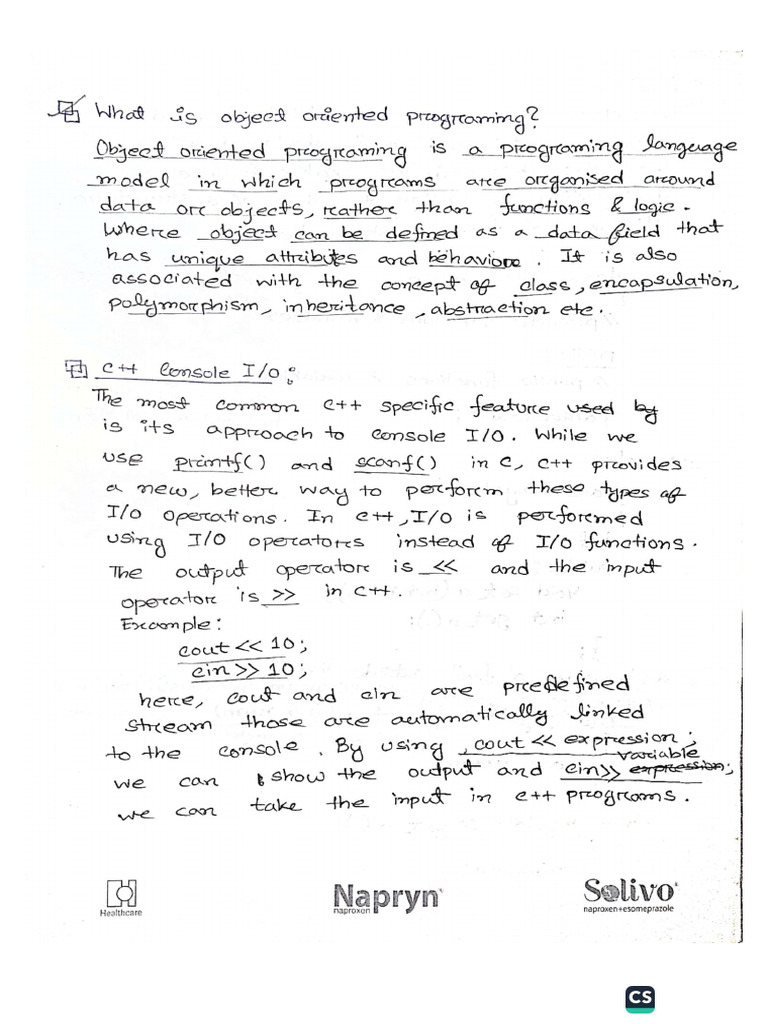 What is object oriented programing?
Object oriented programing is a programing language
model in which programs are organised around
data or objects, rather than functions & logic.
Where object can be defined as a data field that
has unique attributes and behavior. It is also
associated with the concept of class, encapsulation,
polymorphism, inheritance, abstraction etc.
C++ Console I/O:
The most common C++ specific feature used by
is its approach to console I/O. While we
use printf() and scanf() in C, C++ provides
a new, better way to perform these types of
I/O operations. In C++, I/O is performed
using I/O operators instead of I/O functions.
The output operator is << and the input
operator is >> in C++.
Example:
cout << 10;
cin >> 10;
here, cout and cin are predefined
stream those are automatically linked
to the console. By using, cout << expression;
variable
we can show the output and cin>> expression;
we can take the input in C++ programs.
Healthcare
Napryn
naproxen
Solivo
naproxen+esomeprazole
CS